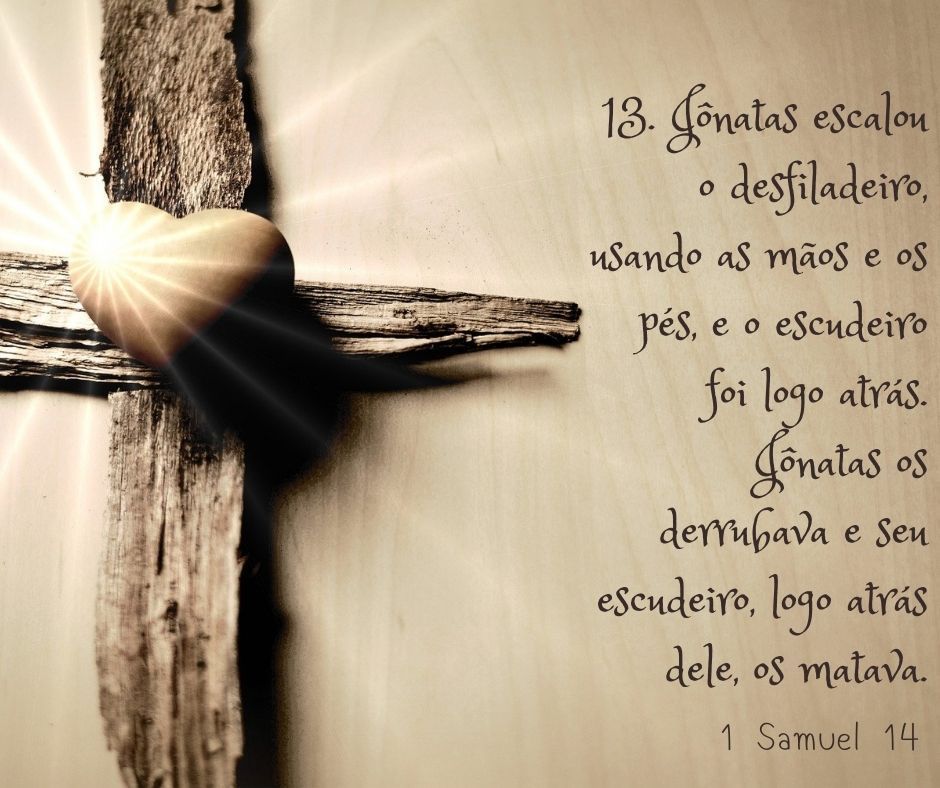 13. Jônatas escalou
o desfiladeiro,
usando as mãos e os
pés, e o escudeiro
foi logo atrás.
Jônatas os
derrubava e seu
escudeiro, logo atrás
dele, os matava.
1 Samuel 14